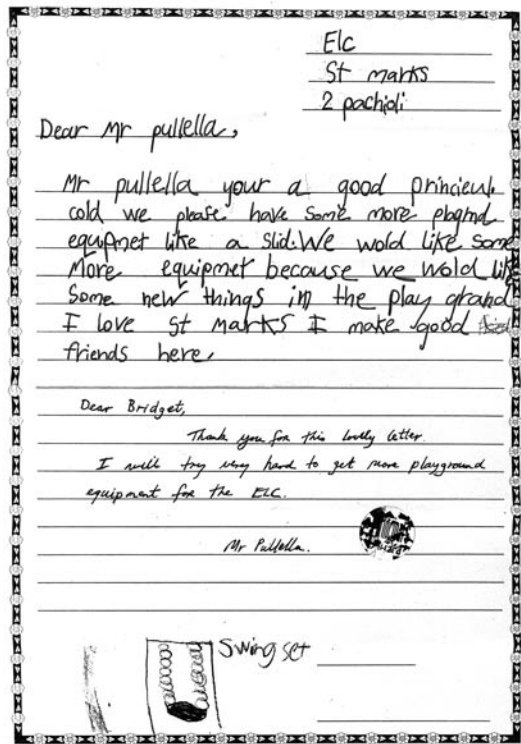 Elc
St marks
2 pachioli
Dear Mr pullella,
Mr pullella your a good princieul.
cold we please have some more plagrnd
equipmet like a slid. We wold like some
More equipmet because we wold like
Some new things in the play grand
I love St marks I make good
friends here.
Dear Bridget,
Thank you for this lovely letter.
I will try very hard to get more playground
equipment for the ELC.
Mr Pullella.
Swing set